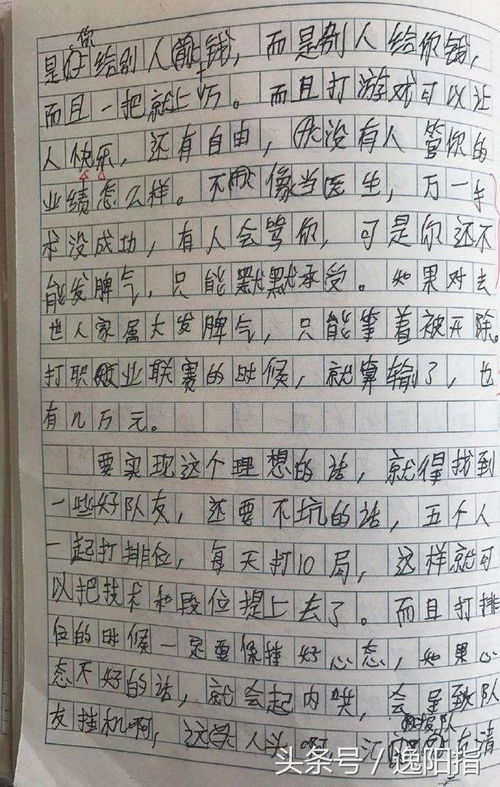 你
是好给别人前钱，而是别人给你钱，
而且一把就上万。而且打游戏可以让
人快乐，还有自由，没有人管你的
业绩怎么样。不像当医生，万一手
术没成功，有人会骂你，可是你还不
能发脾气，只能默默承受。如果对去
世人家属大发脾气，只能等着被开除。
打职业联赛的时候，就算输了，也
有几万元。
要实现这个理想的话，就得找到
一些好队友，还要不坑的话，五个人
一起打排位，每天打10局，这样就可
以把技术和段位提上去了。而且打排
位的时候一定要保持好心态，如果心
态不好的话，就会起内哄，会导致队
友挂机啊，这头人头啊，
头条号／逸阳指